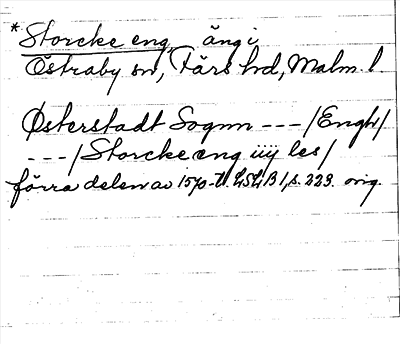 *Storcke eng, äng i
Östraby sn, Färs hd, Malm. l
Østerstadt Sognn --- /Engh/
--- /Storcke eng iiij les/
förra delen av 1570-t. LSLB 1, s. 223. orig.